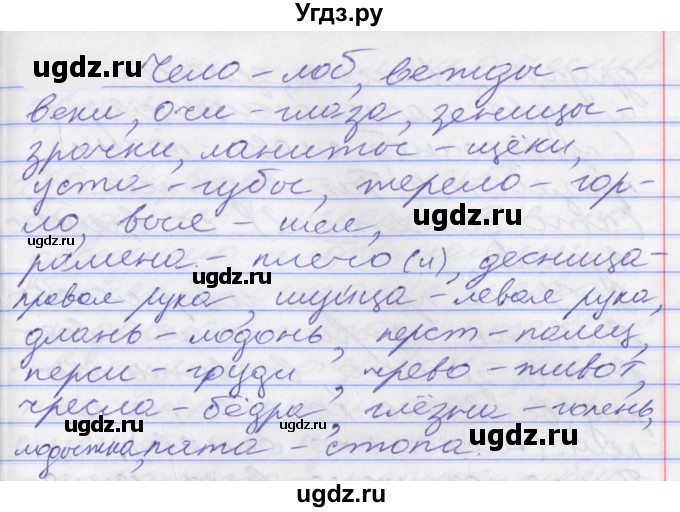 Угдз.ру
Чело - лоб, вежды -
веки, очи - глаза, зеницы -
зрачки, ланиты - щёки,
уста - губы, жерело - гор-
ло, выя - шея,
рамена - плечо (и), десница -
правая рука, шуйца - левая рука,
длань - ладонь, перст - палец,
перси - груди, чрево - живот,
чресла - бёдра, глёзна - голень,
лодыжка, пята - стопа.
ugdz.ru
ugdz.ru
ugdz.ru
ugdz.ru
ugdz.ru
ugdz.ru
ugdz.ru
ugdz.ru
ugdz.ru
ugdz.ru
ugdz.ru